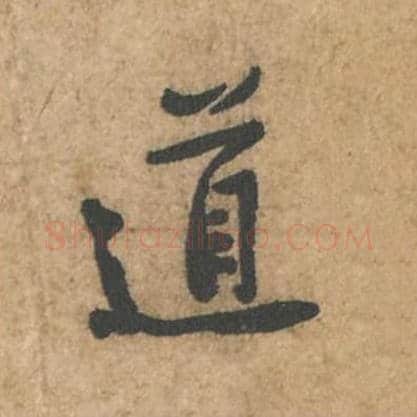 道
shufaziliao.COM